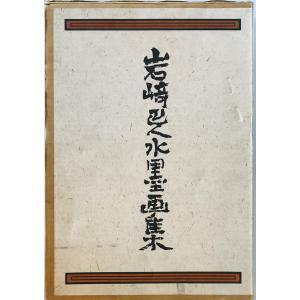 岩﨑巴人水墨画集